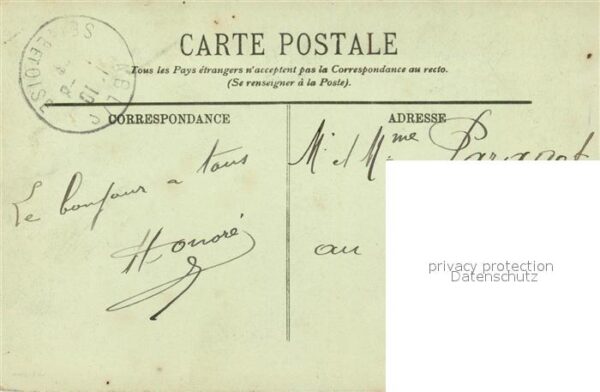 CARTE POSTALE
Tous les Pays étrangers n'acceptent pas la Correspondance au recto.
(Se renseigner à la Poste).
CORRESPONDANCE
Le bonjour a tous
Honoré
ADRESSE
Mr et Mme
au
SEINE ET OISE
privacy protection
Datenschutz